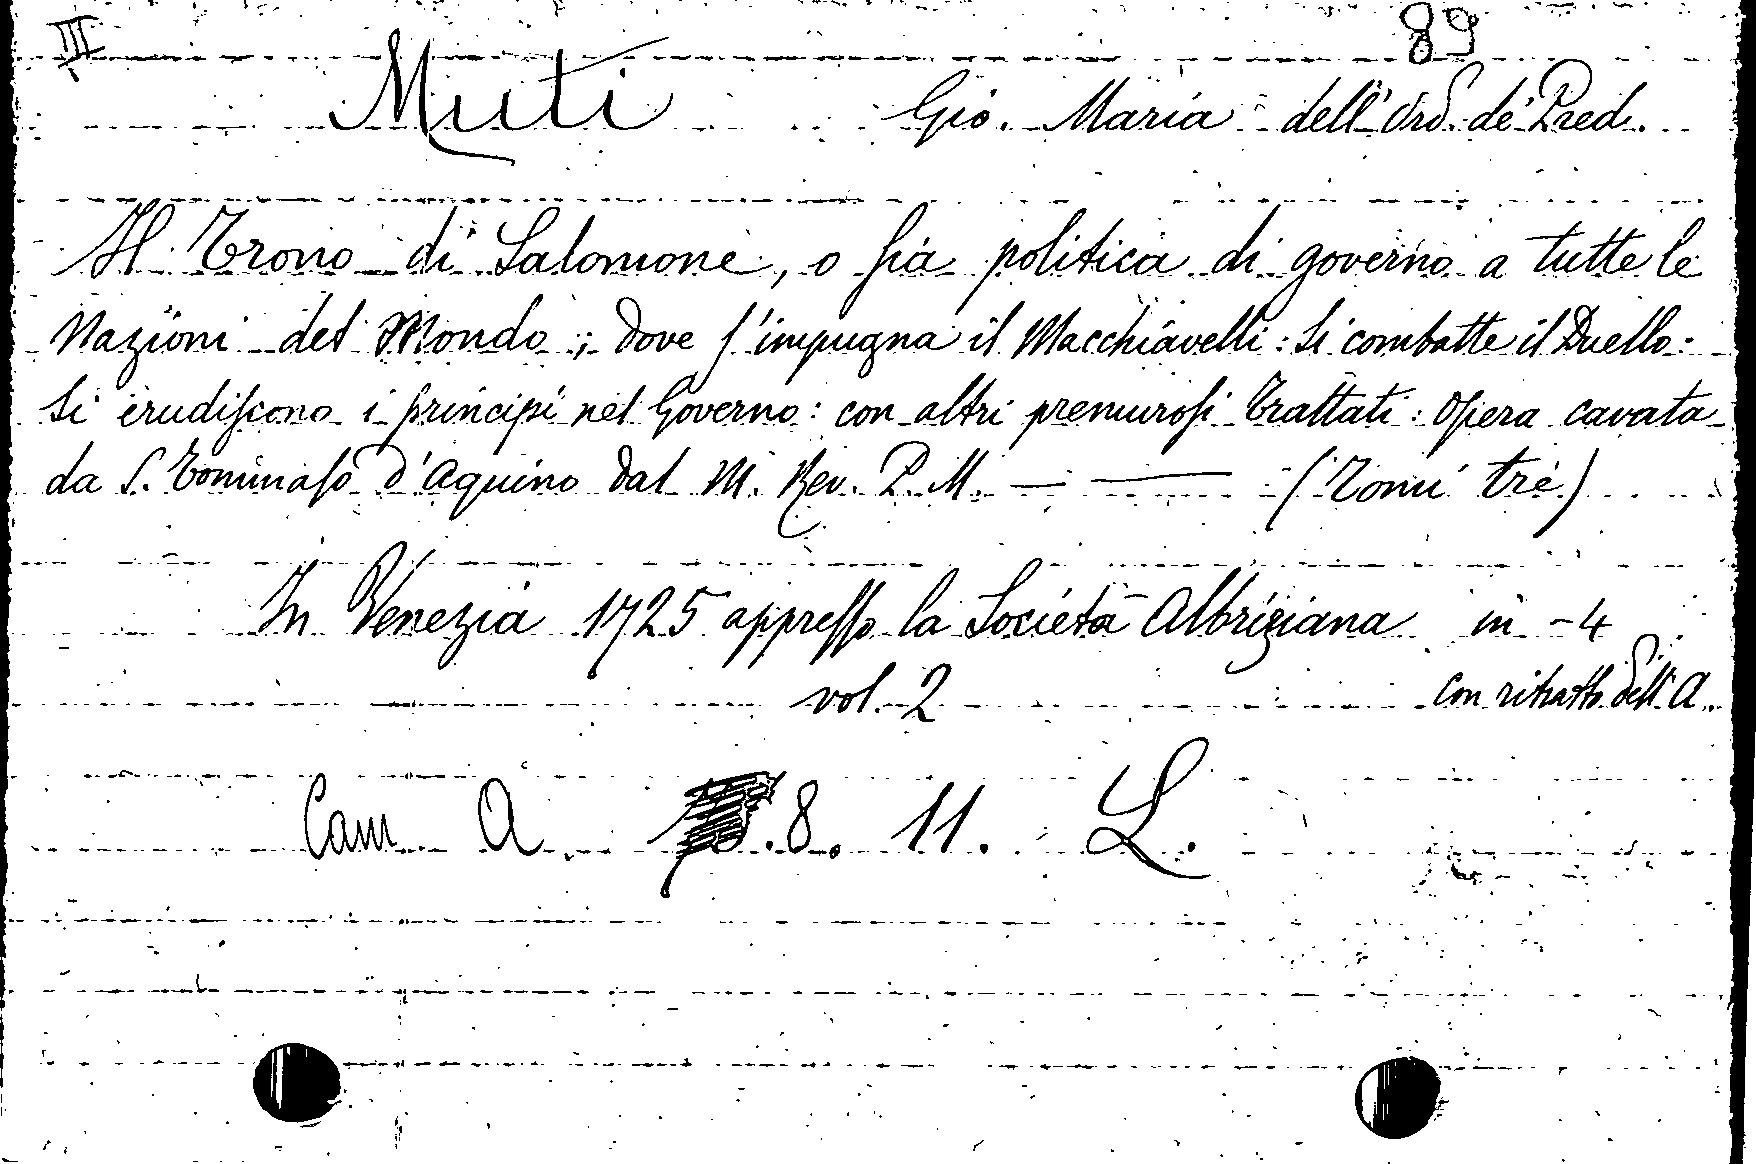 III 89
Muti Gio. Maria dell'Ord. de' Pred.
Il Trono di Salomone, o sia politica di governo a tutte le
Nazioni del Mondo; dove s'impugna il Macchiavelli: si combatte il Duello:
Si erudiscono i principi nel Governo: con altri premurosi Trattati: Opera cavata
da S. Tommaso d'Aquino dal M. Rev. P. M. — — (Tomi tre)
In Venezia 1725 appresso la Società Albriziana in -4
vol. 2 con ritratto dell'A.
Cam A. .8. 11. L.